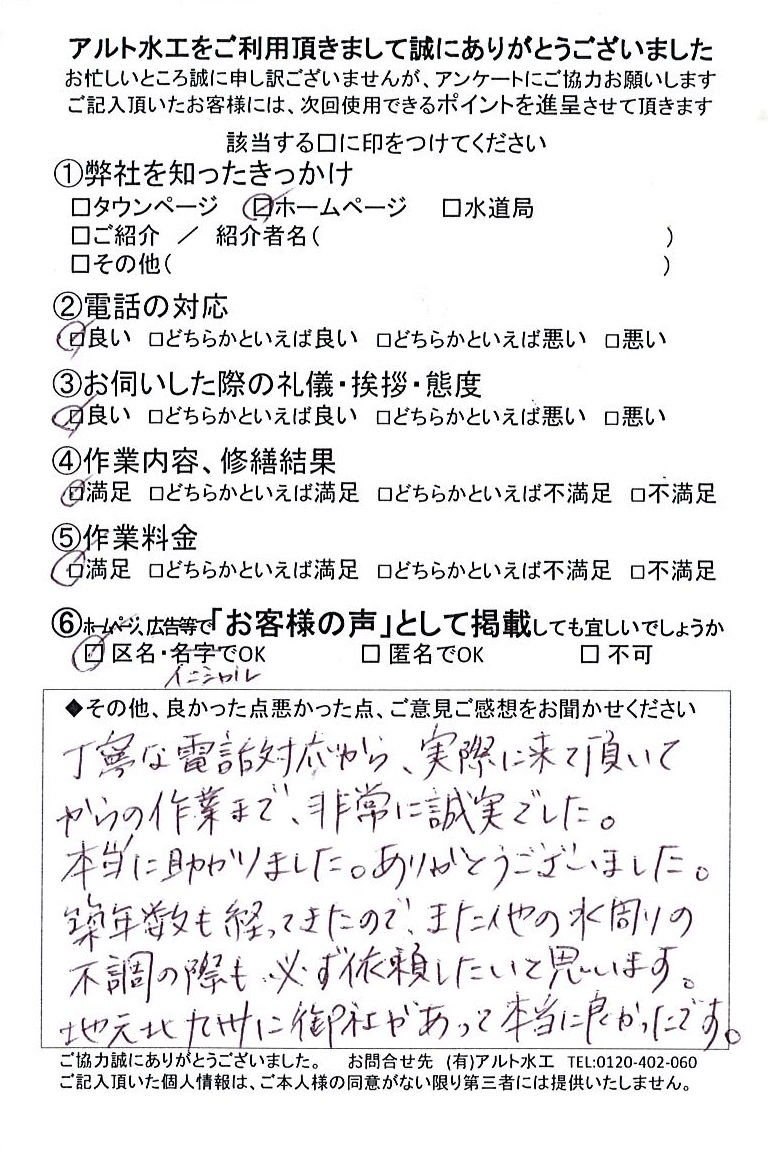 アルト水工をご利用頂きまして誠にありがとうございました
お忙しいところ誠に申し訳ございませんが、アンケートにご協力お願いします
ご記入頂いたお客様には、次回使用できるポイントを進呈させて頂きます
該当する口に印をつけてください
①弊社を知ったきっかけ
□タウンページ ☑ホームページ □水道局
□ご紹介 ／ 紹介者名( )
□その他( )
②電話の対応
☑良い □どちらかといえば良い □どちらかといえば悪い □悪い
③お伺いした際の礼儀・挨拶・態度
☑良い □どちらかといえば良い □どちらかといえば悪い □悪い
④作業内容、修繕結果
☑満足 □どちらかといえば満足 □どちらかといえば不満足 □不満足
⑤作業料金
☑満足 □どちらかといえば満足 □どちらかといえば不満足 □不満足
⑥ホームページ、広告等で「お客様の声」として掲載しても宜しいでしょうか
☑ 区名・名字でOK □ 匿名でOK □ 不可
イニシャル
◆その他、良かった点悪かった点、ご意見ご感想をお聞かせください
丁寧な電話対応から、実際に来て頂いて
からの作業まで、非常に誠実でした。
本当に助かりました。ありがとうございました。
築年数も経ってきたので、また他の水周りの
不調の際も必ず依頼したいと思います。
地元北九州に御社があって本当に良かったです。
ご協力誠にありがとうございました。 お問合せ先 (有)アルト水工 TEL:0120-402-060
ご記入頂いた個人情報は、ご本人様の同意がない限り第三者には提供いたしません。